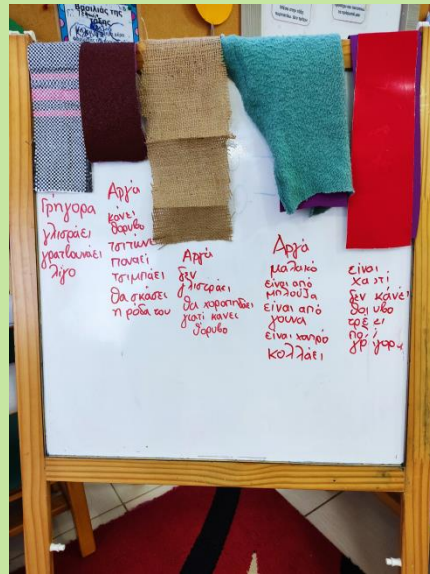 Βασιλιάς της
Γρήγορα
γλιστράει
γρατζουνάει
λίγο
Αργά
κάνει
θόρυβο
τσιτώνει
πονάει
τσιμπάει
θα σκάσει
η ρόδα του
Αργά
δεν
γλιστράει
θα χοροπηδάει
γιατί κάνει
θόρυβο
Αργά
μαλακό
είναι από
μπλούζα
είναι από
γούνα
είναι χοντρό
κολλάει
είναι
χαρτί
δεν κάνει
θόρυβο
τρέχει
πολύ
γρήγορα